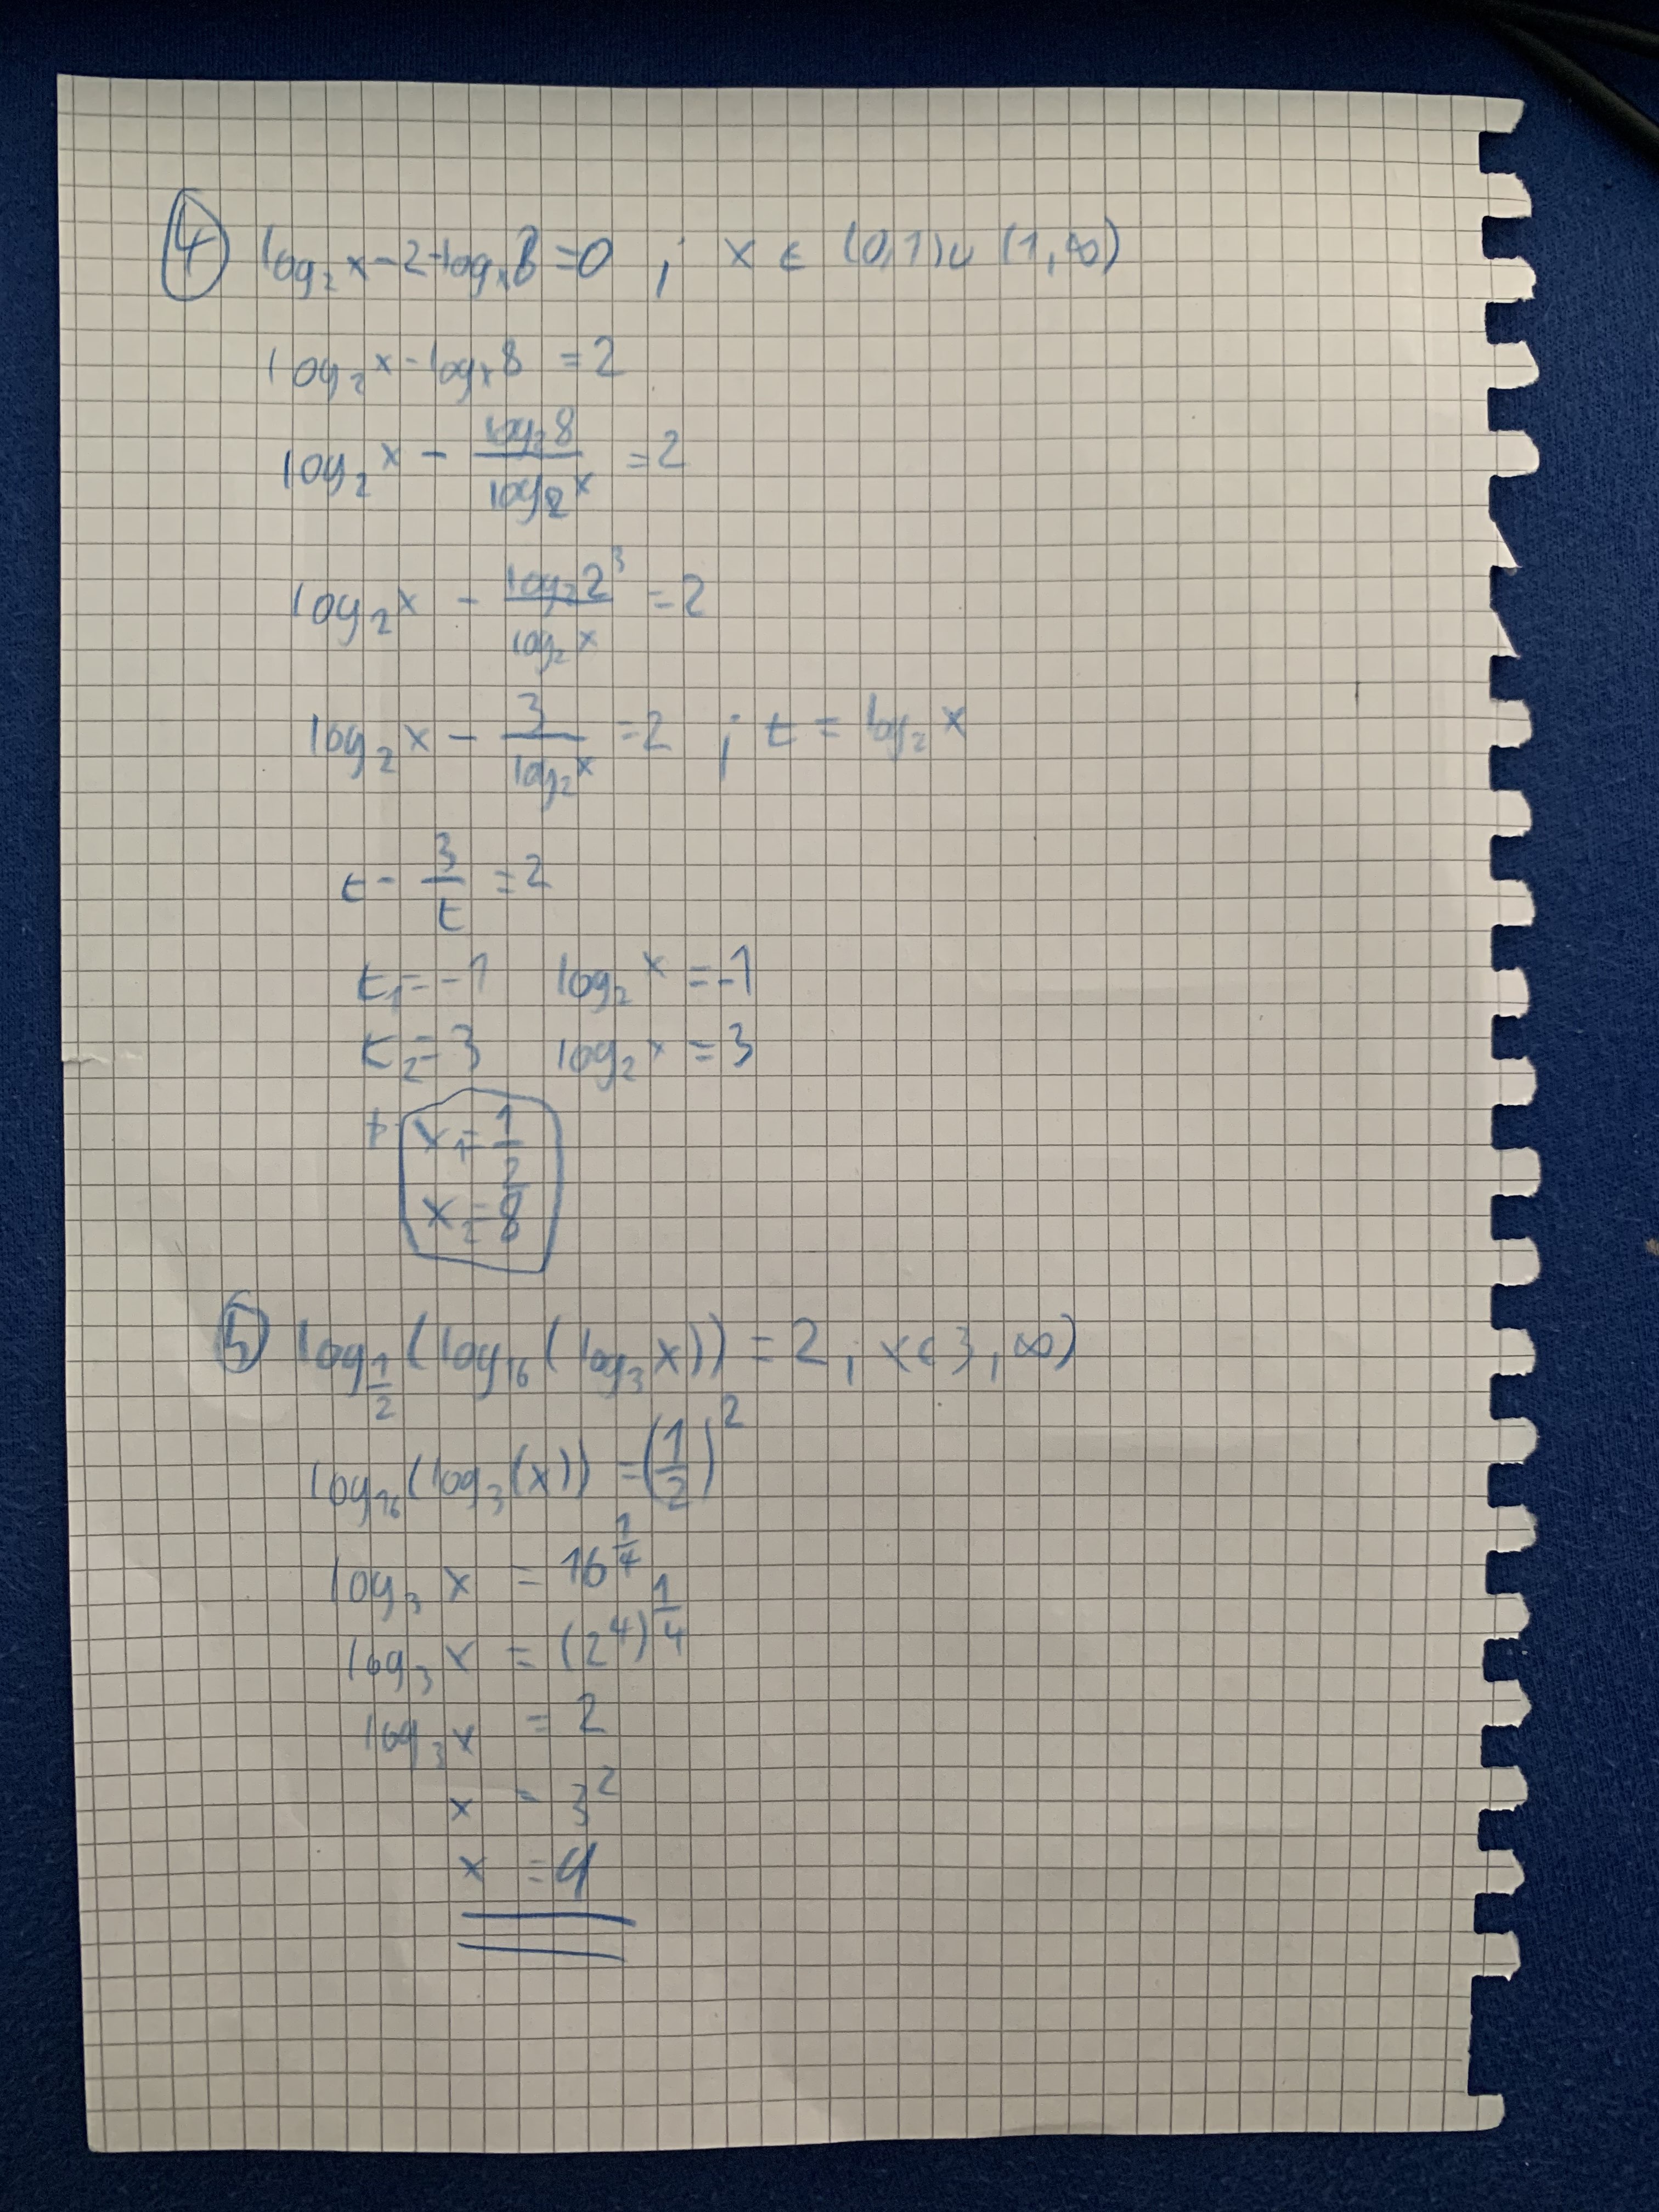 ④ log₂x-2-logₓ8=0 ; x ∈ (0,1)∪(1,∞)
log₂x-logₓ8 =2
log₂x - log₂8/log₂x =2
log₂x - log₂2³/log₂x =2
log₂x - 3/log₂x =2 ; t = log₂x
t - 3/t =2
t₁=-1 log₂x =-1
t₂=3 log₂x =3
x₁=1/2
x₂=8
⑤ log_{1/2}(log₁₆(log₃x)) =2 ; x∈3,∞)
log₁₆(log₃(x)) =(1/2)²
log₃x = 16^{1/4}
log₃x = (2⁴)^{1/4}
log₃x = 2
x = 3²
x =9